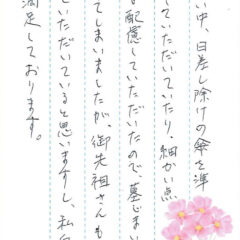 い中、日差し除けの傘を準
していただいていたり、細かい点
配慮していただいたので、墓じまい
てしまいましたが、御先祖さんも
していただいていると思いますし、私
満足しております。